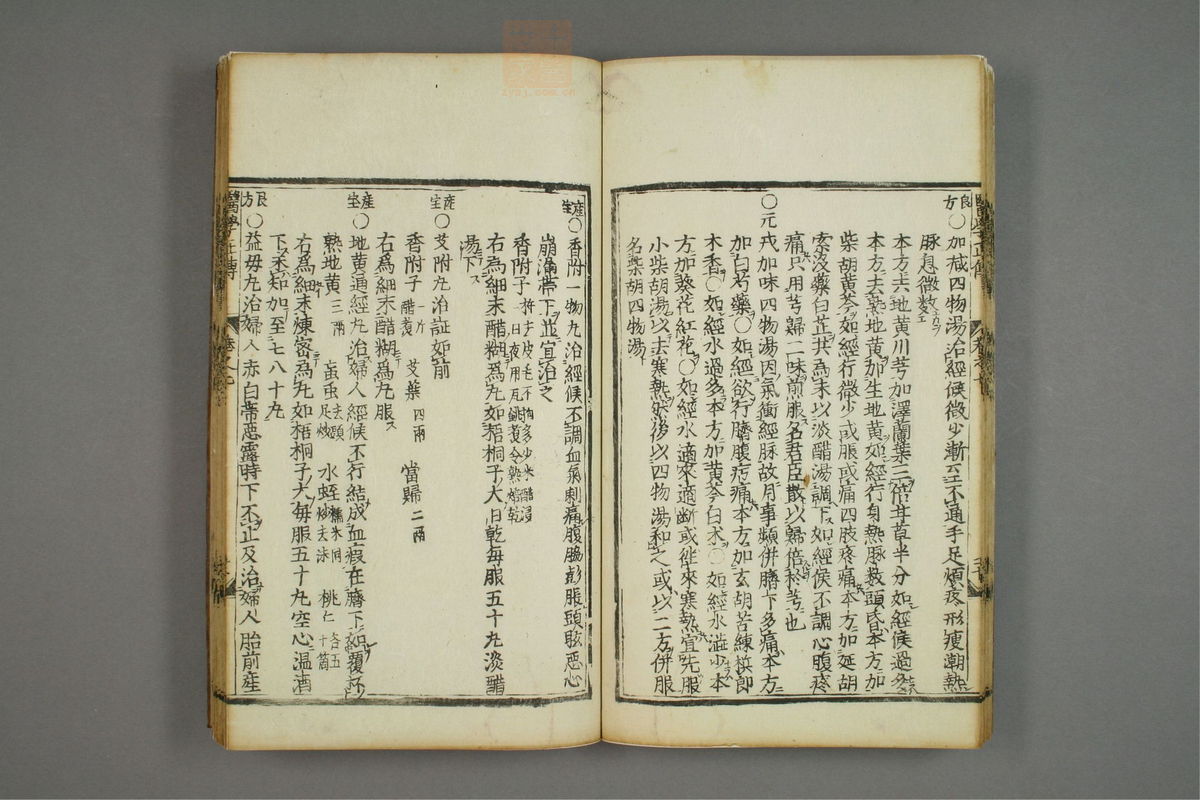 良方○加减四物湯治經候微少漸々不通手足煩疼形瘦潮熱
脉息微数
本方去地黄川芎加澤蘭葉三倍甘草半分如經候過多
本方去熟地黄加生地黄如經行身熱脉数頭昏本方加
柴胡黄芩如經行微少或脹或痛四肢疼痛本方加延胡
索没藥白芷共為末以淡醋湯調下如經候不調心腹疼
痛只用芎歸二味煎服名君臣散以歸倍於芎也
○元戎加味四物湯因氣衝經脉故月事頻併臍下多痛本方
加白芍藥○如經欲行臍腹疞痛本方加玄胡苦練檳郎
木香○如經水過多本方加黄芩白术○如經水澁少本
方加葵花紅花○如經水適來適断或徃來寒熱宜先服
小柴胡湯以去寒熱然後以四物湯和之或以二方併服
名柴胡四物湯
産宝○香附一物丸治經候不調血氣刺痛腹脇膨脹頭眩悪心
崩漏帯下並宜治之
香附子杵去皮毛不拘多少米醋浸一日夜用瓦銚煮令熟焙乾
右為細末醋糊為丸如梧桐子大日乾每服五十丸淡醋
湯下
産宝○艾附丸治証如前
香附子一斤醋煮 艾葉四兩 當歸二兩
右為細末醋糊為丸服
産宝○地黄通經丸治婦人經候不行結成血瘕在臍下如覆杯
熟地黄三兩 虻虫去頭足炒 水蛭糯米同炒去米 桃仁各五十箇
右為細末煉密為丸如梧桐子大每服五十丸空心温酒
下未知加至七八十丸
良方○益毋丸治婦人赤白帯悪露時下不止及治婦人胎前産
醫學正傳
卷之七
zysj.com.cn